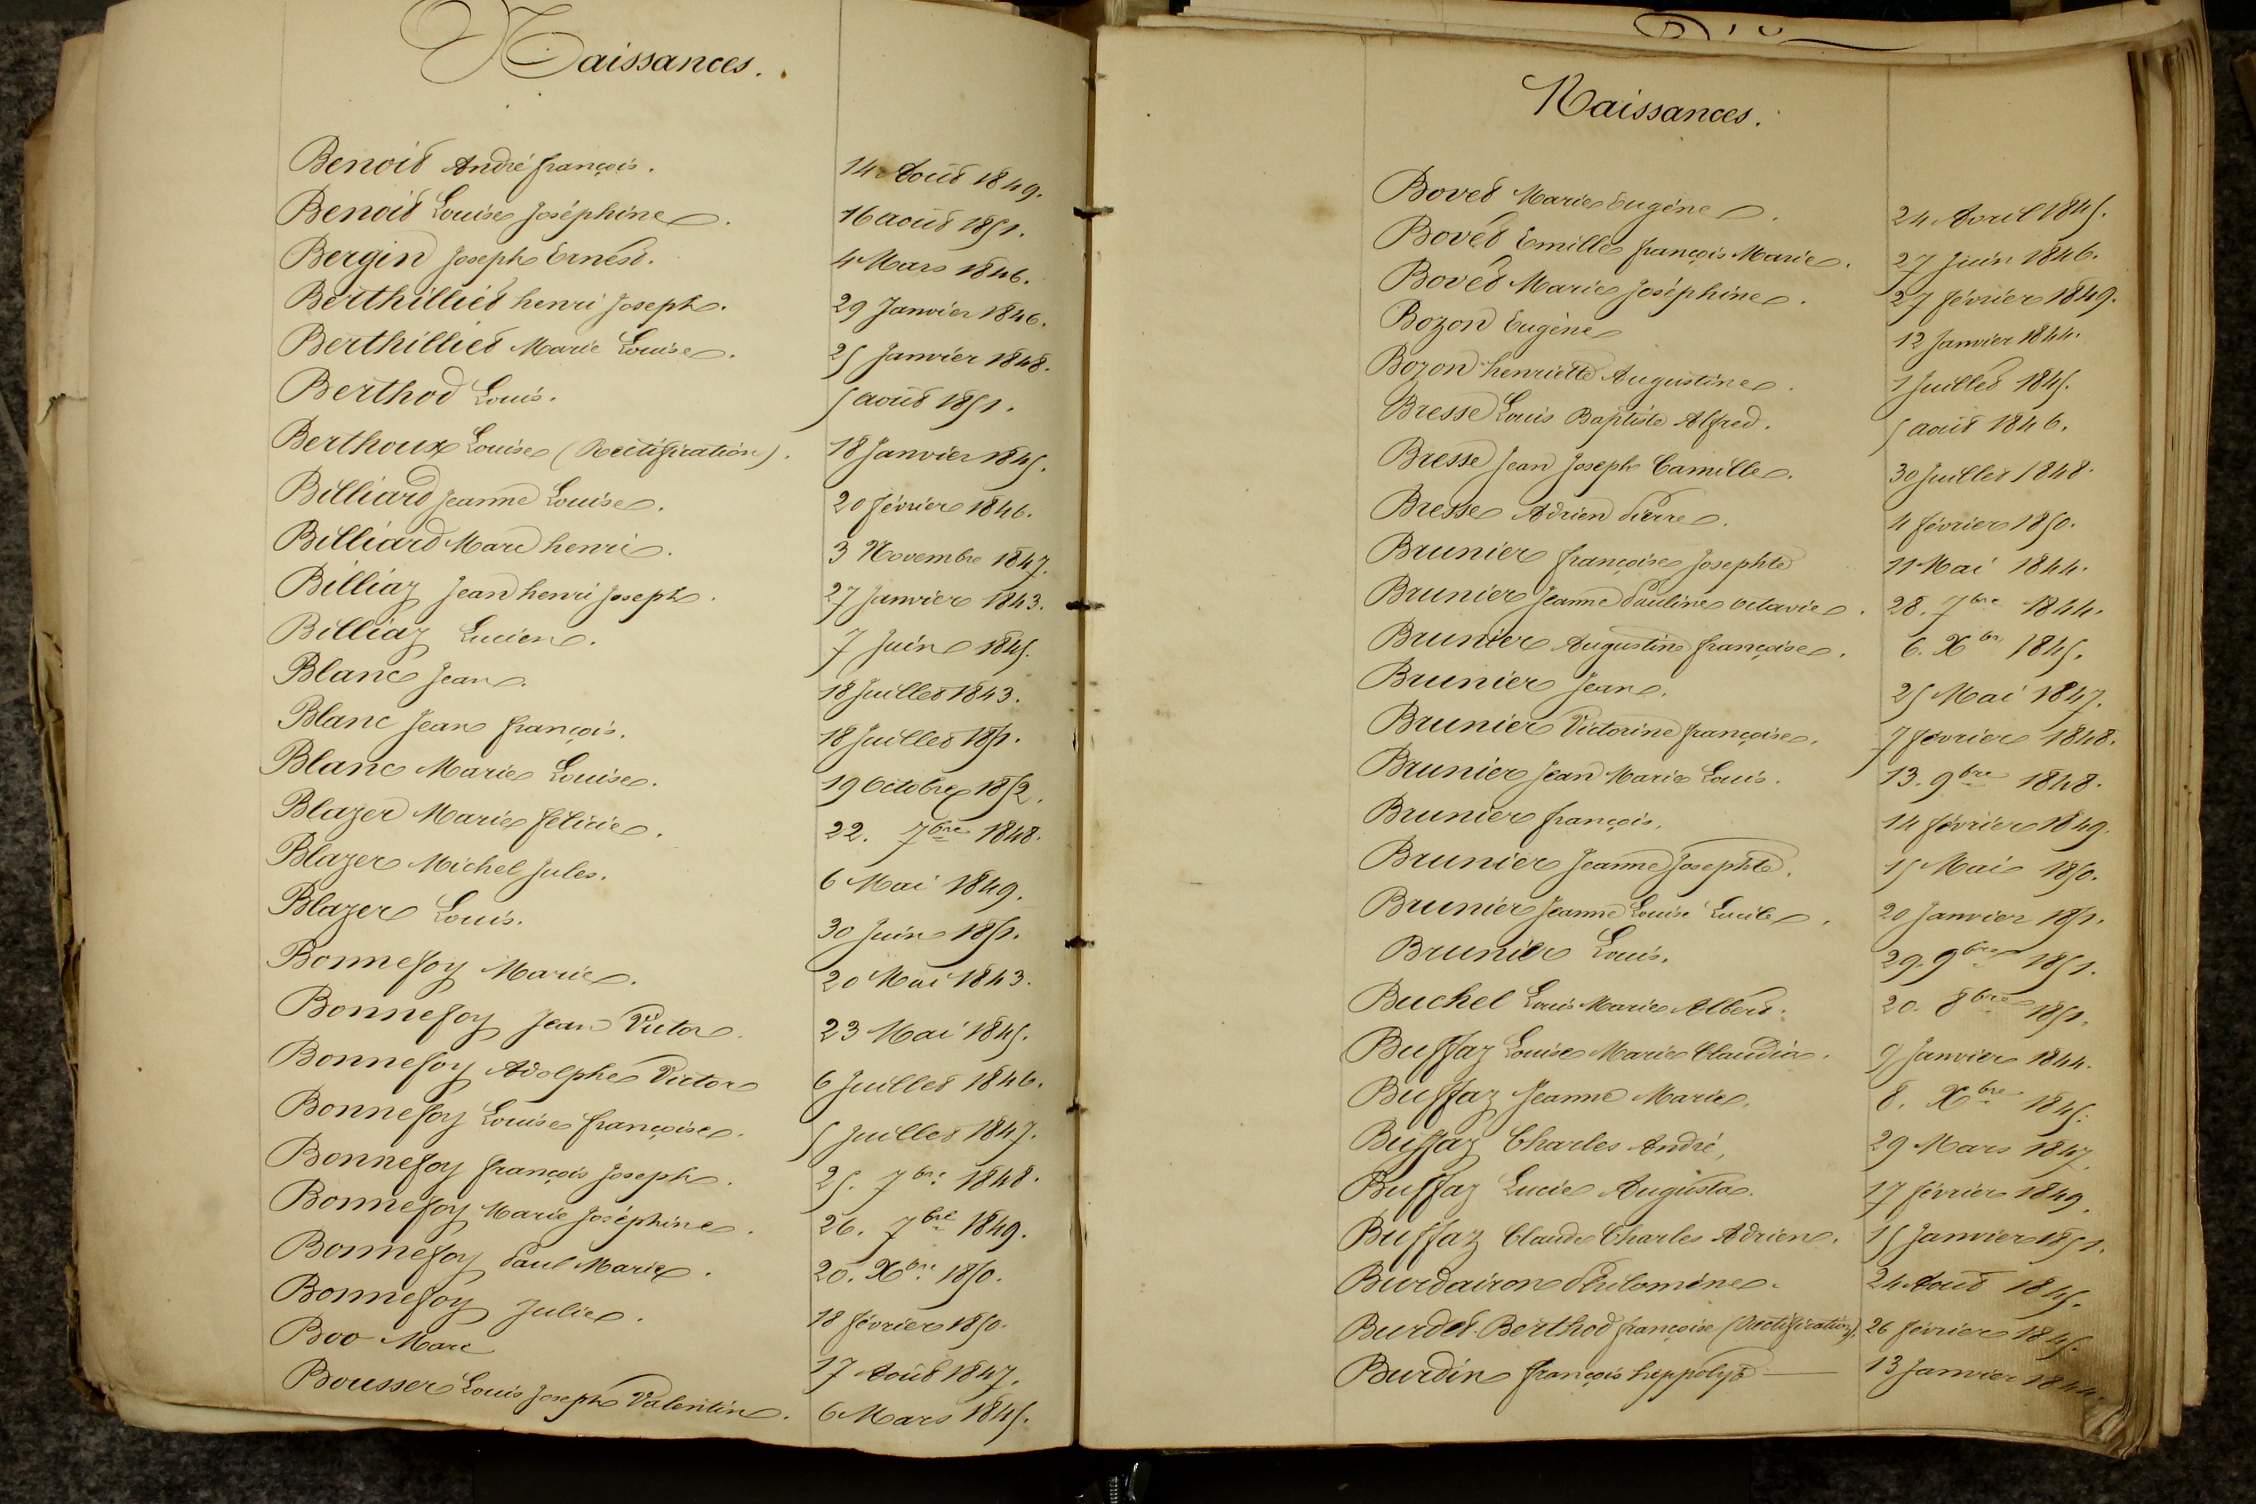 Naissances.
Benoit André françois. 14 Août 1849.
Benoit Louise Joséphine. 16 août 1851.
Bergin Joseph Ernest. 4 Mars 1846.
Berthilliet henri Joseph. 29 Janvier 1846.
Berthilliet Marie Louise. 25 Janvier 1848.
Berthod Louis. 5 août 1851.
Berthoux Louise (Rectification). 18 Janvier 1845.
Billiard Jeanne Louise. 20 février 1846.
Billiard Marc henri. 3 Novembre 1847.
Billiaz Jean henri Joseph. 27 Janvier 1843.
Billiaz Lucien. 7 Juin 1845.
Blanc Jean. 18 Juillet 1843.
Blanc Jean françois. 18 Juillet 1851.
Blanc Marie Louise. 19 Octobre 1852.
Blazer Marie félicie. 22. 7bre 1848.
Blazer Michel Jules. 6 Mai 1849.
Blazer Louis. 30 Juin 1851.
Bonnefoy Marie. 20 Mai 1843.
Bonnefoy Jean Victor. 23 Mai 1845.
Bonnefoy Adolphe Victor 6 Juillet 1846.
Bonnefoy Louise françoise. 5 Juillet 1847.
Bonnefoy françois Joseph. 25. 7bre 1848.
Bonnefoy Marie Joséphine. 26. 7bre 1849.
Bonnefoy Paul Marie. 20. Xbre 1850.
Bonnefoy Julie. 18 février 1850.
Boo Marc 17 Août 1847.
Bousser Louis Joseph Valentin. 6 Mars 1845.
Naissances.
Bovet Marie Eugène. 24 Avril 1845.
Bovet Emille françois Marie. 27 Juin 1846.
Bovet Marie Joséphine. 27 février 1849.
Bozon Eugène 12 Janvier 1844.
Bozon henriette Augustine. 1 Juillet 1845.
Bresse Louis Baptiste Alfred. 5 août 1846.
Bresse Jean Joseph Camille. 30 Juillet 1848.
Bresse Adrien Pierre. 4 février 1850.
Brunier françoise Josephte 11 Mai 1844.
Brunier Jeanne Pauline Octavie. 28. 7bre 1844.
Brunier Augustine françoise. 6. Xbre 1845.
Brunier Jean. 25 Mai 1847.
Brunier Victorine françoise. 7 février 1848.
Brunier Jean Marie Louis. 13. 9bre 1848.
Brunier françois. 14 février 1849.
Brunier Jeanne Josephte. 15 Mai 1850.
Brunier Jeanne Louise Lucile. 20 Janvier 1851.
Brunier Louis. 29. 9bre 1851.
Buchel Louis Marie Albert. 20. 8bre 1851.
Buffaz Louise Marie Claudia. 9 Janvier 1844.
Buffaz Jeanne Marie. 8. Xbre 1845.
Buffaz Charles André, 29 Mars 1847.
Buffaz Lucie Augusta. 17 février 1849.
Buffaz Claude Charles Adrien. 15 Janvier 1851.
Burdairon Philomène. 24 Août 1845.
Burdet-Berthod françoise (Rectification). 26 février 1845.
Burdin françois hippolyte — 13 Janvier 1844.